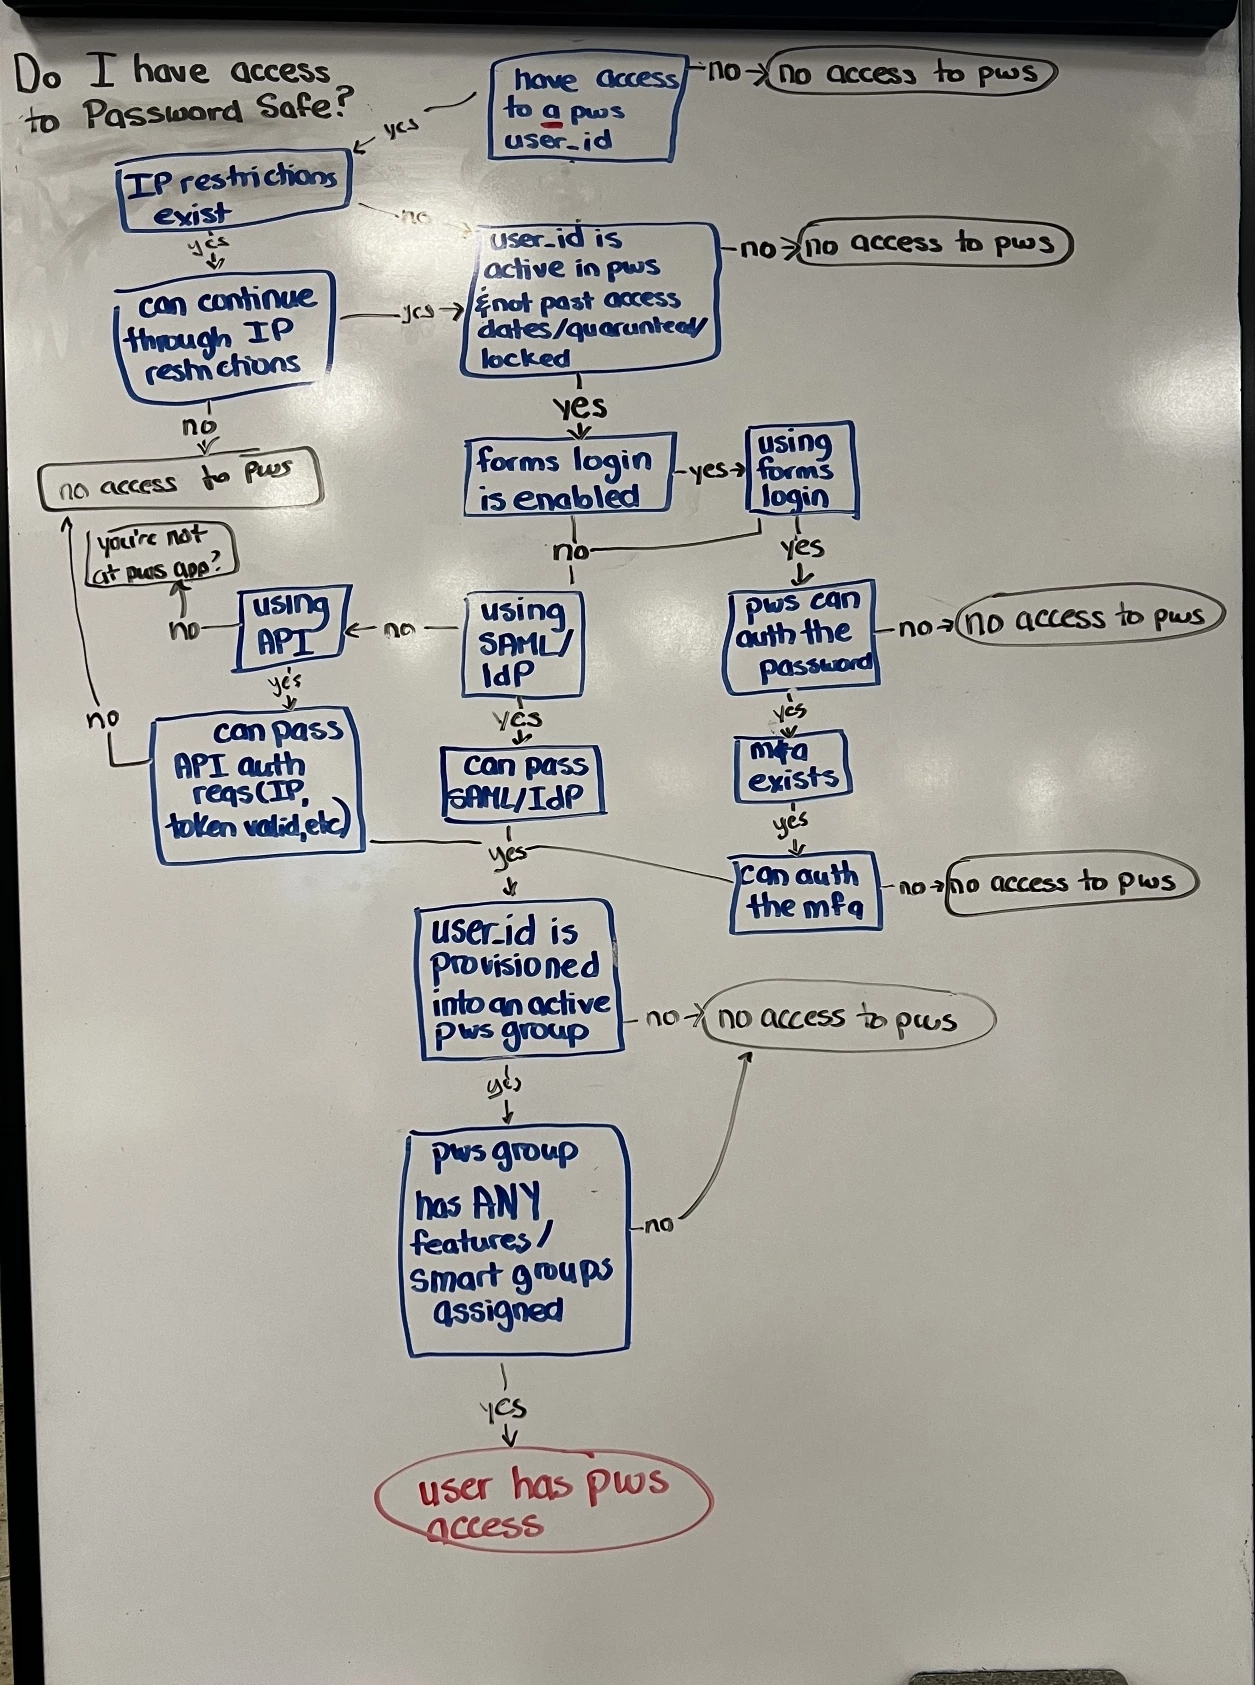 Do I have access
to Password Safe?
have access
to a pws
user_id
no
no access to pws
yes
IP restrictions
exist
no
yes
user_id is
active in pws
& not past access
dates/quarunteed/
locked
no
no access to pws
can continue
through IP
restrictions
yes
no
no access to pws
yes
forms login
is enabled
yes
using
forms
login
no
yes
you're not
at pws app?
using
API
no
no
using
SAML/
IdP
pws can
auth the
password
no
no access to pws
yes
yes
yes
no
can pass
API auth
reqs (IP,
token valid, etc)
can pass
SAML/IdP
mfa
exists
yes
yes
can auth
the mfa
no
no access to pws
user_id is
provisioned
into an active
pws group
no
no access to pws
yes
pws group
has ANY
features/
smart groups
assigned
no
yes
user has pws
access